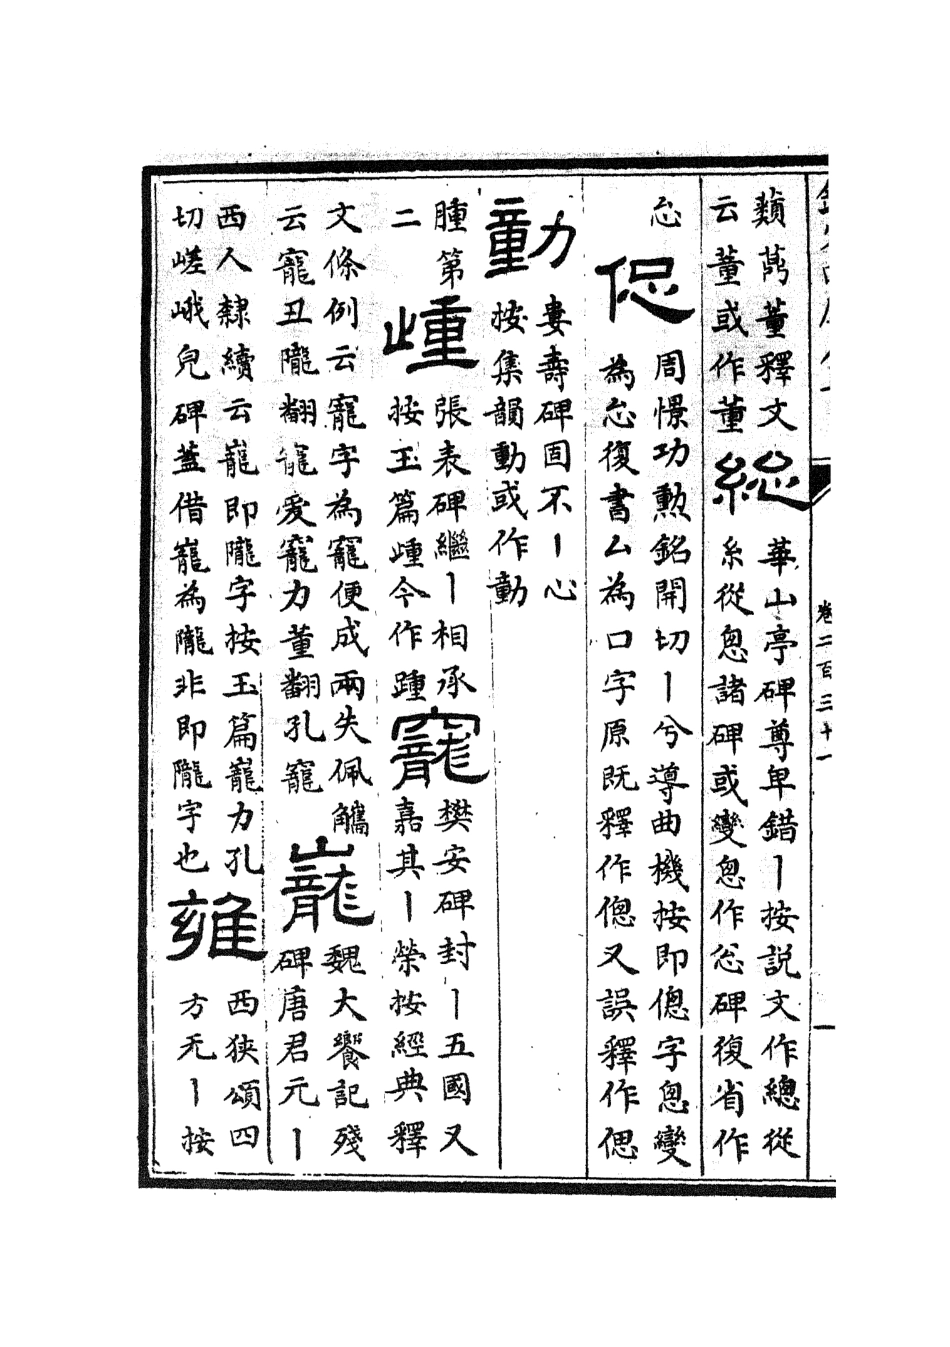 蘱蕅董釋文
云蕫或作董
総
華山亭碑尊卑錯丨按説文作總從
糸從悤諸碑或變悤作忩碑復省作
偬
周憬功勲銘開切丨兮導曲機按即傯字悤變
為忩復書厶為口字原既釋作傯又誤釋作偲
動
婁壽碑固不丨心
按集韻動或作勭
腫第
二
㣫
張表碑繼丨相承
按玉篇㣫今作踵
寵
樊安碑封丨五國又
嘉其丨榮按經典釋
文條例云寵字為竉便成兩失佩觿
云寵丑隴翻寵愛竉力董翻孔竉
巃
魏大饗記殘
碑唐君元丨
西人隸續云巃即隴字按玉篇巃力孔
切嵯峨皃碑蓋借巃為隴非即隴字也
雍
西狹頌四
方无丨按
卷二百三十一